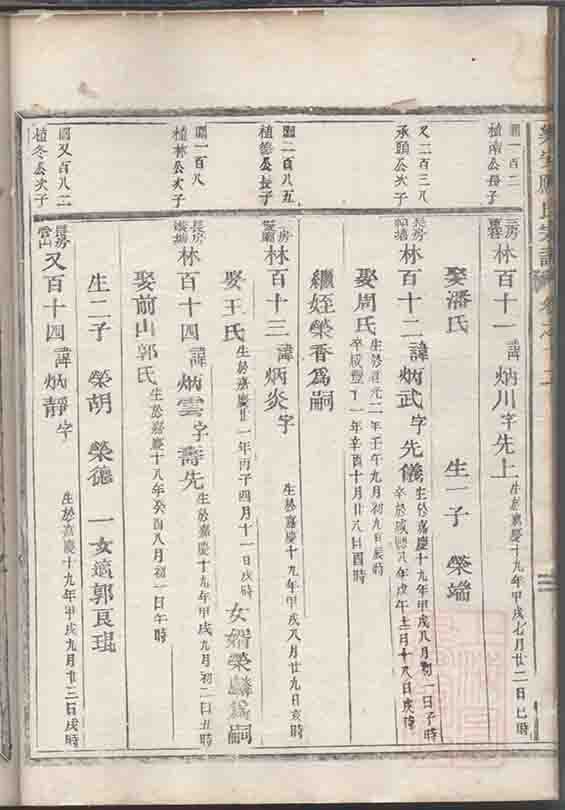 氏宗譜
圖一百二
植南公長子
林百十一諱炳川字先上
生於嘉慶十九年甲戌七月廿二日巳時
娶潘氏 生一子 榮端
又二百三八
承頤公次子
長房
林百十二諱炳武字先儀
生於嘉慶十九年甲戌八月初一日子時
娶周氏
年壬午九月初九日辰時
卒咸豐十一年辛酉十月廿八日酉時
繼姪榮香爲嗣
圖二百八五
植德公長子
房
林百十三諱炳炎字
生於嘉慶十九年甲戌八月廿九日亥時
娶王氏
生於嘉慶廿一年丙子四月十一日戌時
女婿榮麟爲嗣
圖一百八
植林公次子
長房
林百十四諱炳雲字壽先
生於嘉慶十九年甲戌九月初二日丑時
娶前山郭氏
生於嘉慶十八年癸酉八月初一日午時
生二子 榮胡 榮德 一女適郭良琨
圖又百八二
植冬公次子
長房
雲山
又百十四諱炳靜字
生於嘉慶十九年甲戌九月廿三日戌時